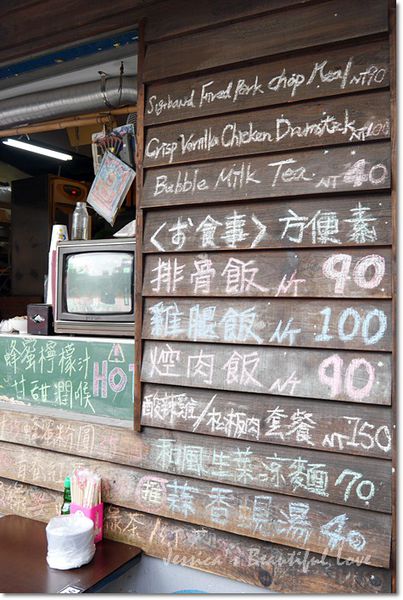 Signband Fried Pork chop Meal NT90
Crisp Vanilla Chicken Drumstick NT100
Bubble Milk Tea NT 40
〈お食事〉方便素
排骨飯 NT 90
雞腿飯 NT 100
焢肉飯 NT 90
酸辣雞/松板肉套餐 NT150
和風生菜涼麵 70
蒜香蜆湯 40
蜂蜜檸檬汁 HOT
甘甜潤喉
Jessica's Beautiful Love